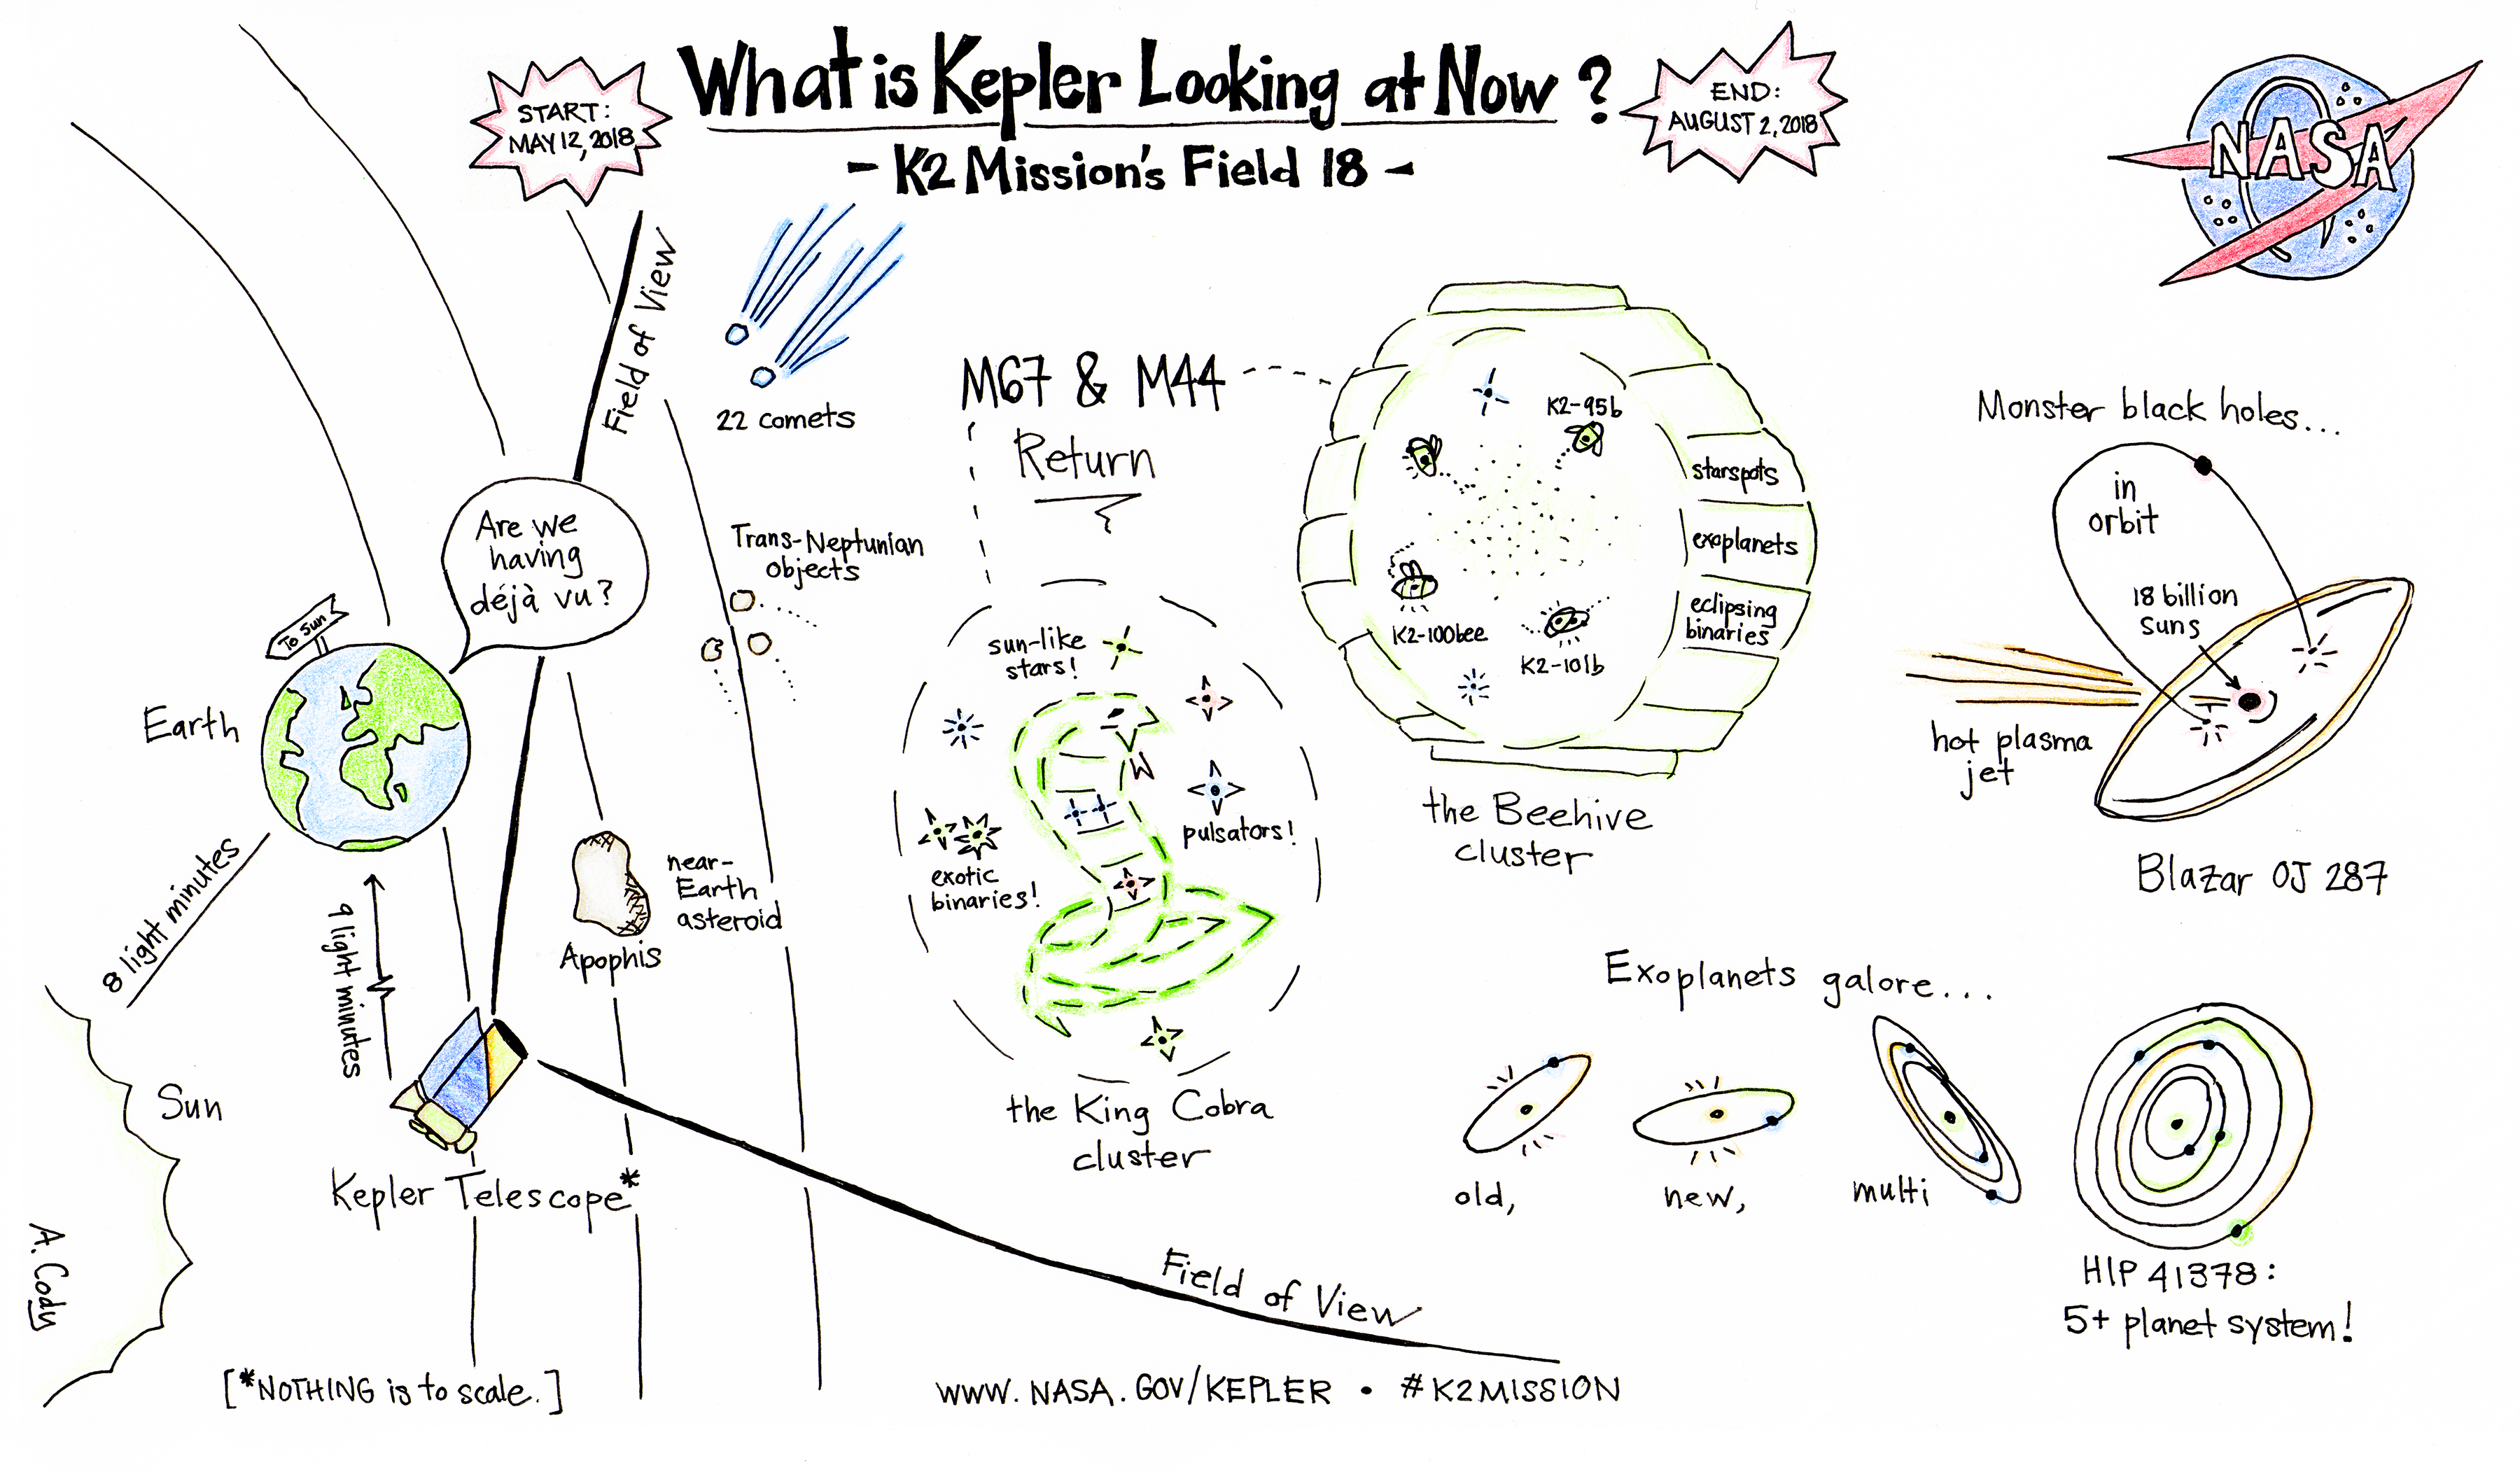 START:
MAY 12, 2018
What is Kepler Looking at Now?
- K2 Mission's Field 18 -
END:
AUGUST 2, 2018
NASA
Field of View
22 comets
M67 & M44
Return
K2-95b
starspots
exoplanets
eclipsing
binaries
K2-100bee
K2-101b
the Beehive
cluster
Monster black holes...
in
orbit
18 billion
suns
hot plasma
jet
Blazar OJ 287
Are we
having
déjà vu?
Trans-Neptunian
objects
To Sun
Earth
8 light minutes
9 light minutes
near-
Earth
asteroid
Apophis
sun-like
stars!
pulsators!
exotic
binaries!
the King Cobra
cluster
Sun
Kepler Telescope*
A. Cody
Exoplanets galore...
old,
new,
multi
HIP 41378:
5+ planet system!
Field of View
[*NOTHING is to scale.]
WWW.NASA.GOV/KEPLER • #K2MISSION